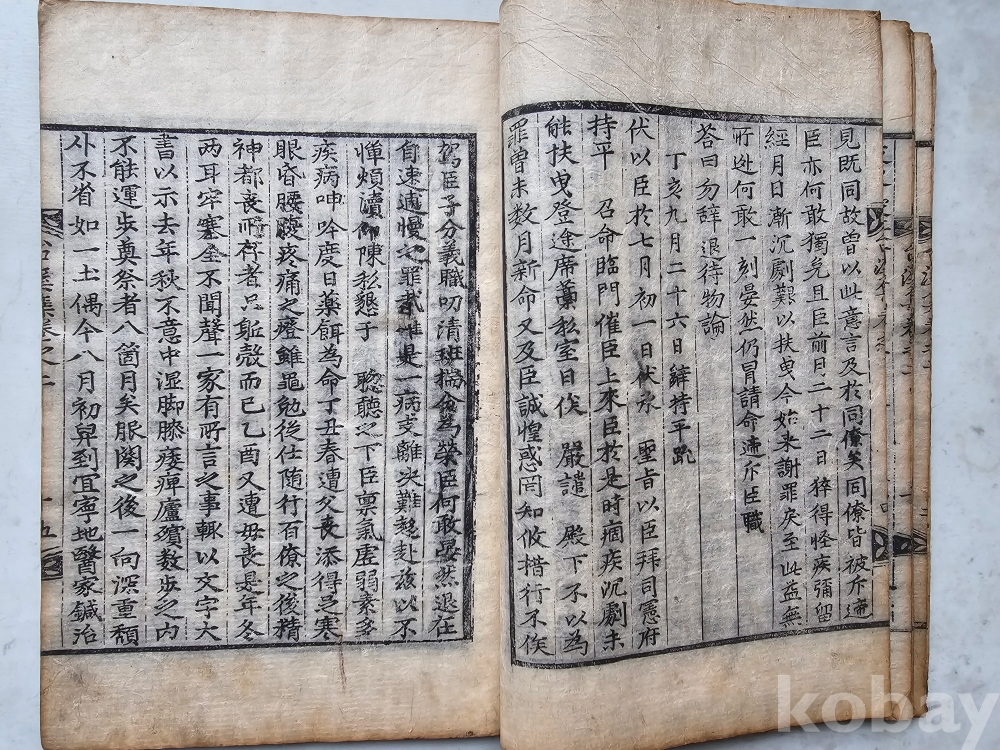 見既同故曾以此意言及於同僚矣同僚皆被斥遞
臣亦何敢獨免且臣前日二十二日猝得怪疾彌留
經月日漸沉劇艱以扶曳今始来謝罪戾至此益無
所逃何敢一刻晏然仍冒請命遞斥臣職
答曰勿辞退待物論
丁亥九月二十六日辭持平䟽
伏以臣於七月初一日伏承 聖旨以臣拜司憲府
持平 召命臨門催臣上來臣於是時痼疾沉劇未
能扶曳登途席藁私室日俟 嚴譴 殿下不以為
罪曾未數月新命又及臣誠惶惑罔知攸措行不俟
駕臣子分義職叨清班揣分為榮臣何敢晏然退在
自速逋慢之罪哉惟是一病支離决難趍赴玆以不
憚煩瀆仰陳私懇于 聡聽之下臣禀氣虛弱素多
疾病呻吟度日藥餌為命丁丑春遭父喪添得足寒
眼昏腰腹疼痛之證雖黽勉從仕随行百僚之後精
神都喪所存者只軀殼而已乙酉又遭母喪是年冬
两耳窂塞全不聞聲一家有所言之事輙以文字大
書以示去年秋不意中湿脚膝痿痺廬殯數步之内
不能運步奠祭者八箇月矣服闋之後一向深重頽
仆不省如一土偶今八月初舁到宜寧地醫家鍼治
十五
kobay